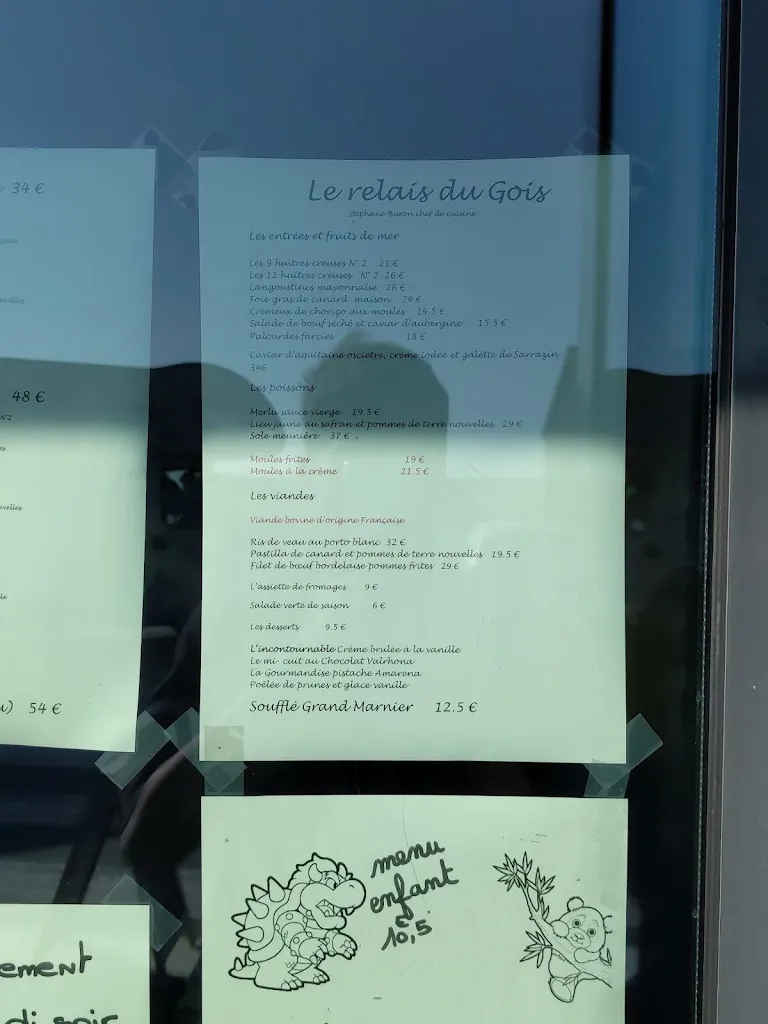 34 €
48 €
N°2
54 €
Le relais du Gois
Stephane Buron chef de cuisine
Les entrées et fruits de mer
Les 9 huîtres creuses N° 2 21 €
Les 12 huîtres creuses N° 2 26 €
Langoustines mayonnaise 26 €
Foie gras de canard maison 24 €
Crémeux de chorizo aux moules 14.5 €
Salade de bœuf séché et caviar d'aubergine 15.5 €
Palourdes farcies 18 €
Caviar d'aquitaine osciètre, crème iodée et galette de Sarrazin
34€
Les poissons
Merlu sauce vierge 19.5 €
Lieu jaune au safran et pommes de terre nouvelles 29 €
Sole meunière 37 €
Moules frites 19 €
Moules à la crème 21.5 €
Les viandes
Viande bovine d'origine Française
Ris de veau au porto blanc 32 €
Pastilla de canard et pommes de terre nouvelles 19.5 €
Filet de bœuf bordelaise pommes frites 29 €
L'assiette de fromages 9 €
Salade verte de saison 6 €
Les desserts 9.5 €
L'incontournable Crème brulée à la vanille
Le mi- cuit au Chocolat Valrhona
La Gourmandise pistache Amarena
Poêlée de prunes et glace vanille
Soufflé Grand Marnier 12.5 €
menu
enfant
10,5
ement
di soir